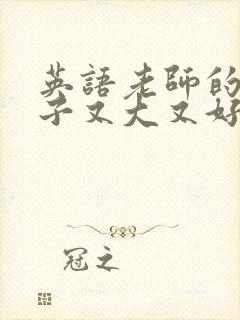 英語老師的
子又大又好
冠之